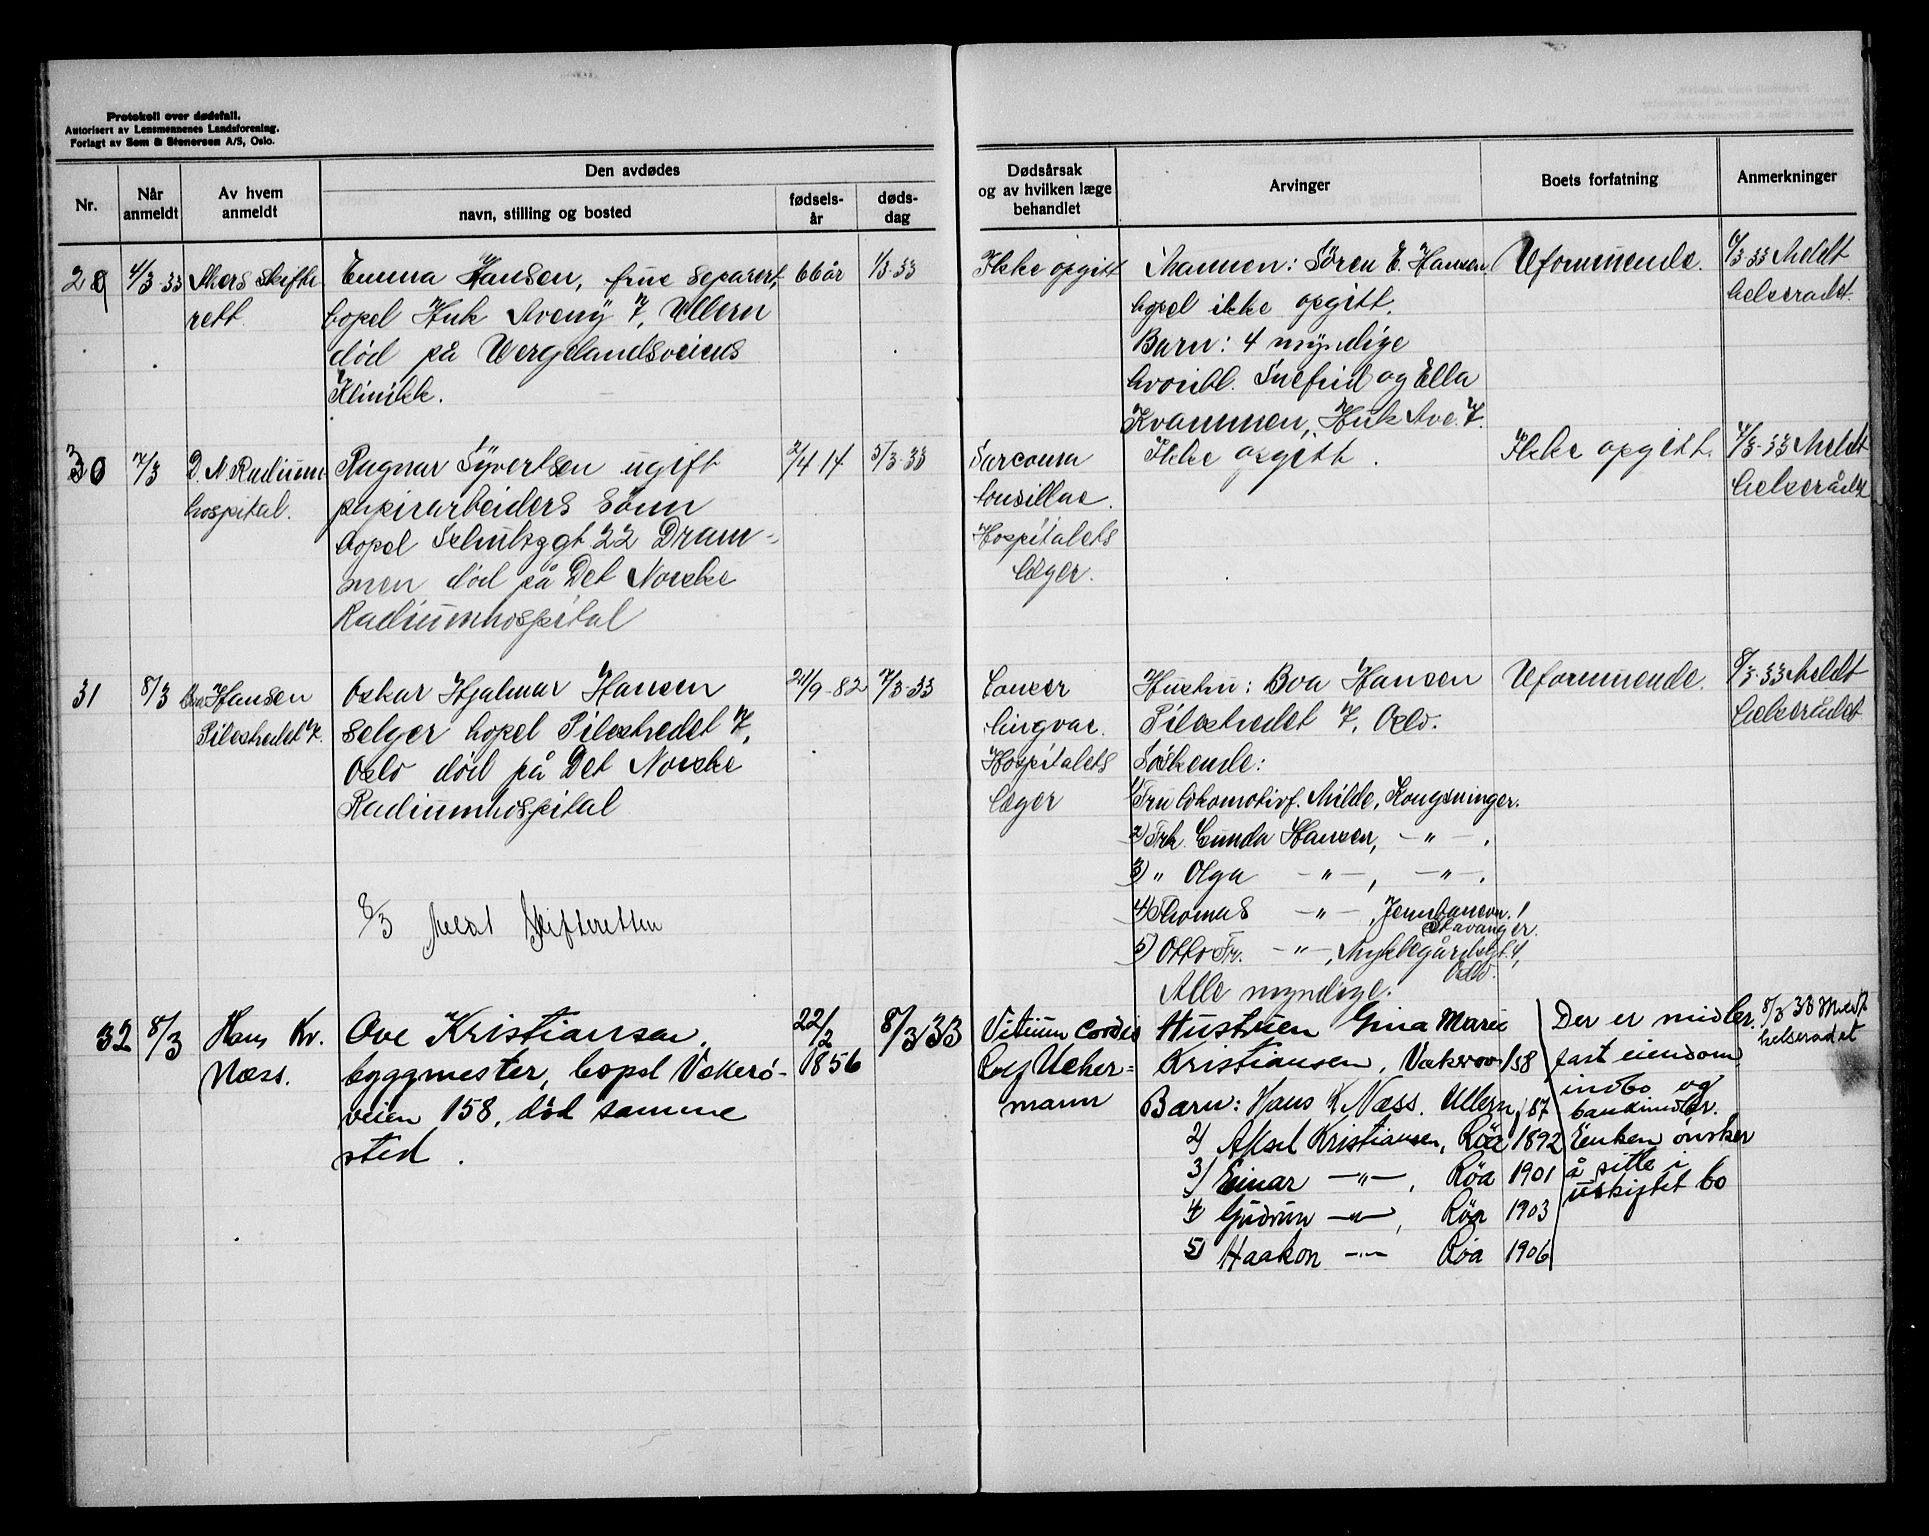 Protokoll over dødsfall.
Autorisert av Lensmennenes Landsforening.
Forlagt av Sem & Stenersen A/S, Oslo.
Nr.
Når anmeldt
Av hvem anmeldt
Den avdødes
navn, stilling og bosted
fødsels-år
døds-dag
Dødsårsak og av hvilken læge behandlet
Arvinger
Boets forfatning
Anmerkninger
29
4/3-33
Akers skifte
rett.
Emma Hansen, frue separert,
bopel Huk Aveny 7, Ullern
død på Wergelandsveiens
Klinikk.
66 år
1/3-33
Ikke opgitt
Mannen: Sören E. Hansen
bopel ikke opgitt.
Barn: 4 myndige
hvoribl. Snefrid og Ella
Kvammen, Huk Ave. 7.
Uformuende.
4/3-33 Meldt
helserådet.
30
7/3
D. N. Radium
hospital.
Ragnar Syvertsen ugift
papirarbeiders sönn
bopel 22 Dram-
men död på Det Norske
Radiumhospital
2/4 14
5/3-33
Sarcoma
tonsillae.
Hospitalets
læger.
Ikke opgitt.
Ikke opgitt.
7/3-33 Meldt
helserådet
31
8/3
Hansen
Pilestredet 7.
Oskar Hjalmar Hansen
selger bopel Pilestredet 7,
Oslo död på Det Norske
Radiumhospital
21/9-82
7/3-33
Cancer
lingvae.
Hospitalets
læger
Hustru: Boa Hansen
Pilestredet 7, Oslo.
Söskende:
1) Fru lokomotivf. Milde, Kongsvinger.
2) Frk. Gunda Hansen, -"- .
3) " Olga -"-, -"- .
4) Thomas -"-, Jernbanevn. 1
Stavanger.
5) Otto Fr. -"-, Myklegårdsgt. 4,
Oslo.
Alle myndige.
Uformuende.
8/3-33 Meldt
helserådet
8/3 Meldt Skifteretten
32
8/3
Hans Kr.
Næss.
Ove Kristiansen,
byggmester, bopel Vækerö-
veien 158, död samme
sted.
22/2
1856
8/3 33
Vitium cordis
Ucher=
mann
Hustruen Gina Marie
Kristiansen, Vækröv 158
Barn: Hans K. Næss. Ullern, 87
2) Aksel Kristiansen, Röa 1892
3) Einar -"-, Röa 1901
4) Gudrun -"-, Röa 1903
5) Haakon -"- Röa 1906
Der er midler.
fast eiendom,
indbo og
bankmidler.
Enken önsker
å sitte i
uskiftet bo
8/3 33 Meldt
helseradet